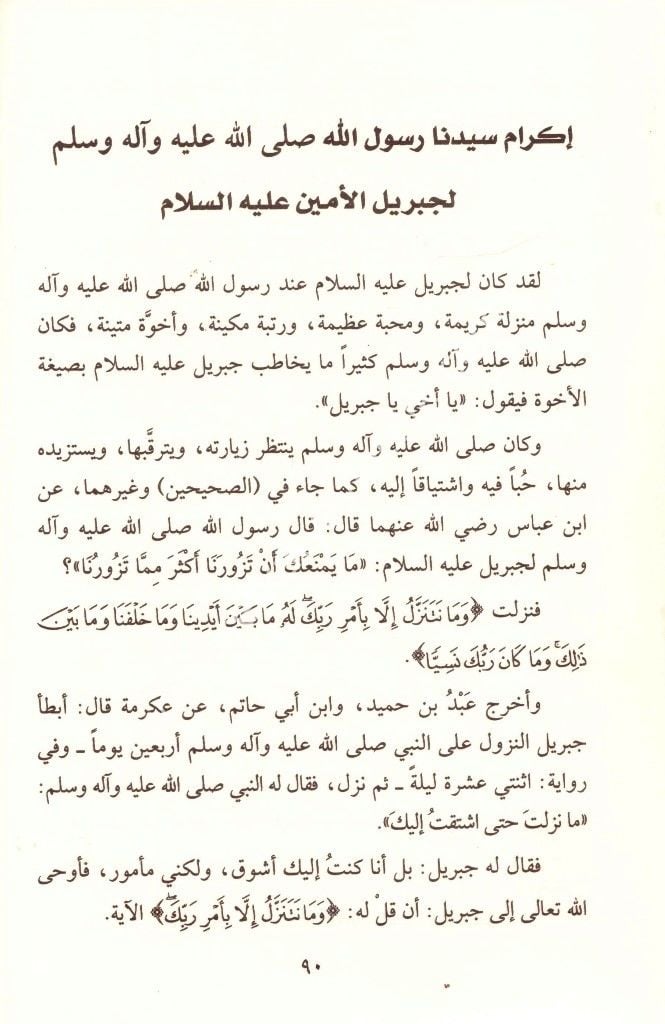 إكرام سيدنا رسول الله صلى الله عليه وآله وسلم
لجبريل الأمين عليه السلام
لقد كان لجبريل عليه السلام عند رسول الله صلى الله عليه وآله
وسلم منزلة كريمة، ومحبة عظيمة، ورتبة مكينة، وأخوَّة متينة، فكان
صلى الله عليه وآله وسلم كثيراً ما يخاطب جبريل عليه السلام بصيغة
الأخوة فيقول: «يا أخي يا جبريل».
وكان صلى الله عليه وآله وسلم ينتظر زيارته، ويترقَّبها، ويستزيده
منها، حُباً فيه واشتياقاً إليه، كما جاء في (الصحيحين) وغيرهما، عن
ابن عباس رضي الله عنهما قال: قال رسول الله صلى الله عليه وآله
وسلم لجبريل عليه السلام: «مَا يَمْنَعُكَ أَنْ تَزُورَنَا أَكْثَرَ مِمَّا تَزُورُنَا»؟
فنزلت ﴿وَمَا نَتَنَزَّلُ إِلَّا بِأَمْرِ رَبِّكَ ۖ لَهُ مَا بَيْنَ أَيْدِينَا وَمَا خَلْفَنَا وَمَا بَيْنَ
ذَٰلِكَ ۚ وَمَا كَانَ رَبُّكَ نَسِيًّا﴾.
وأخرج عَبْدُ بن حميد، وابن أبي حاتم، عن عكرمة قال: أبطأ
جبريل النزول على النبي صلى الله عليه وآله وسلم أربعين يوماً ـ وفي
رواية: اثنتي عشرة ليلةً ـ ثم نزل، فقال له النبي صلى الله عليه وآله وسلم:
«ما نزلتَ حتى اشتقتُ إليكَ».
فقال له جبريل: بل أنا كنتُ إليك أشوق، ولكني مأمور، فأوحى
الله تعالى إلى جبريل: أن قلْ له: ﴿وَمَا نَتَنَزَّلُ إِلَّا بِأَمْرِ رَبِّكَ ۖ﴾ الآية.
٩٠